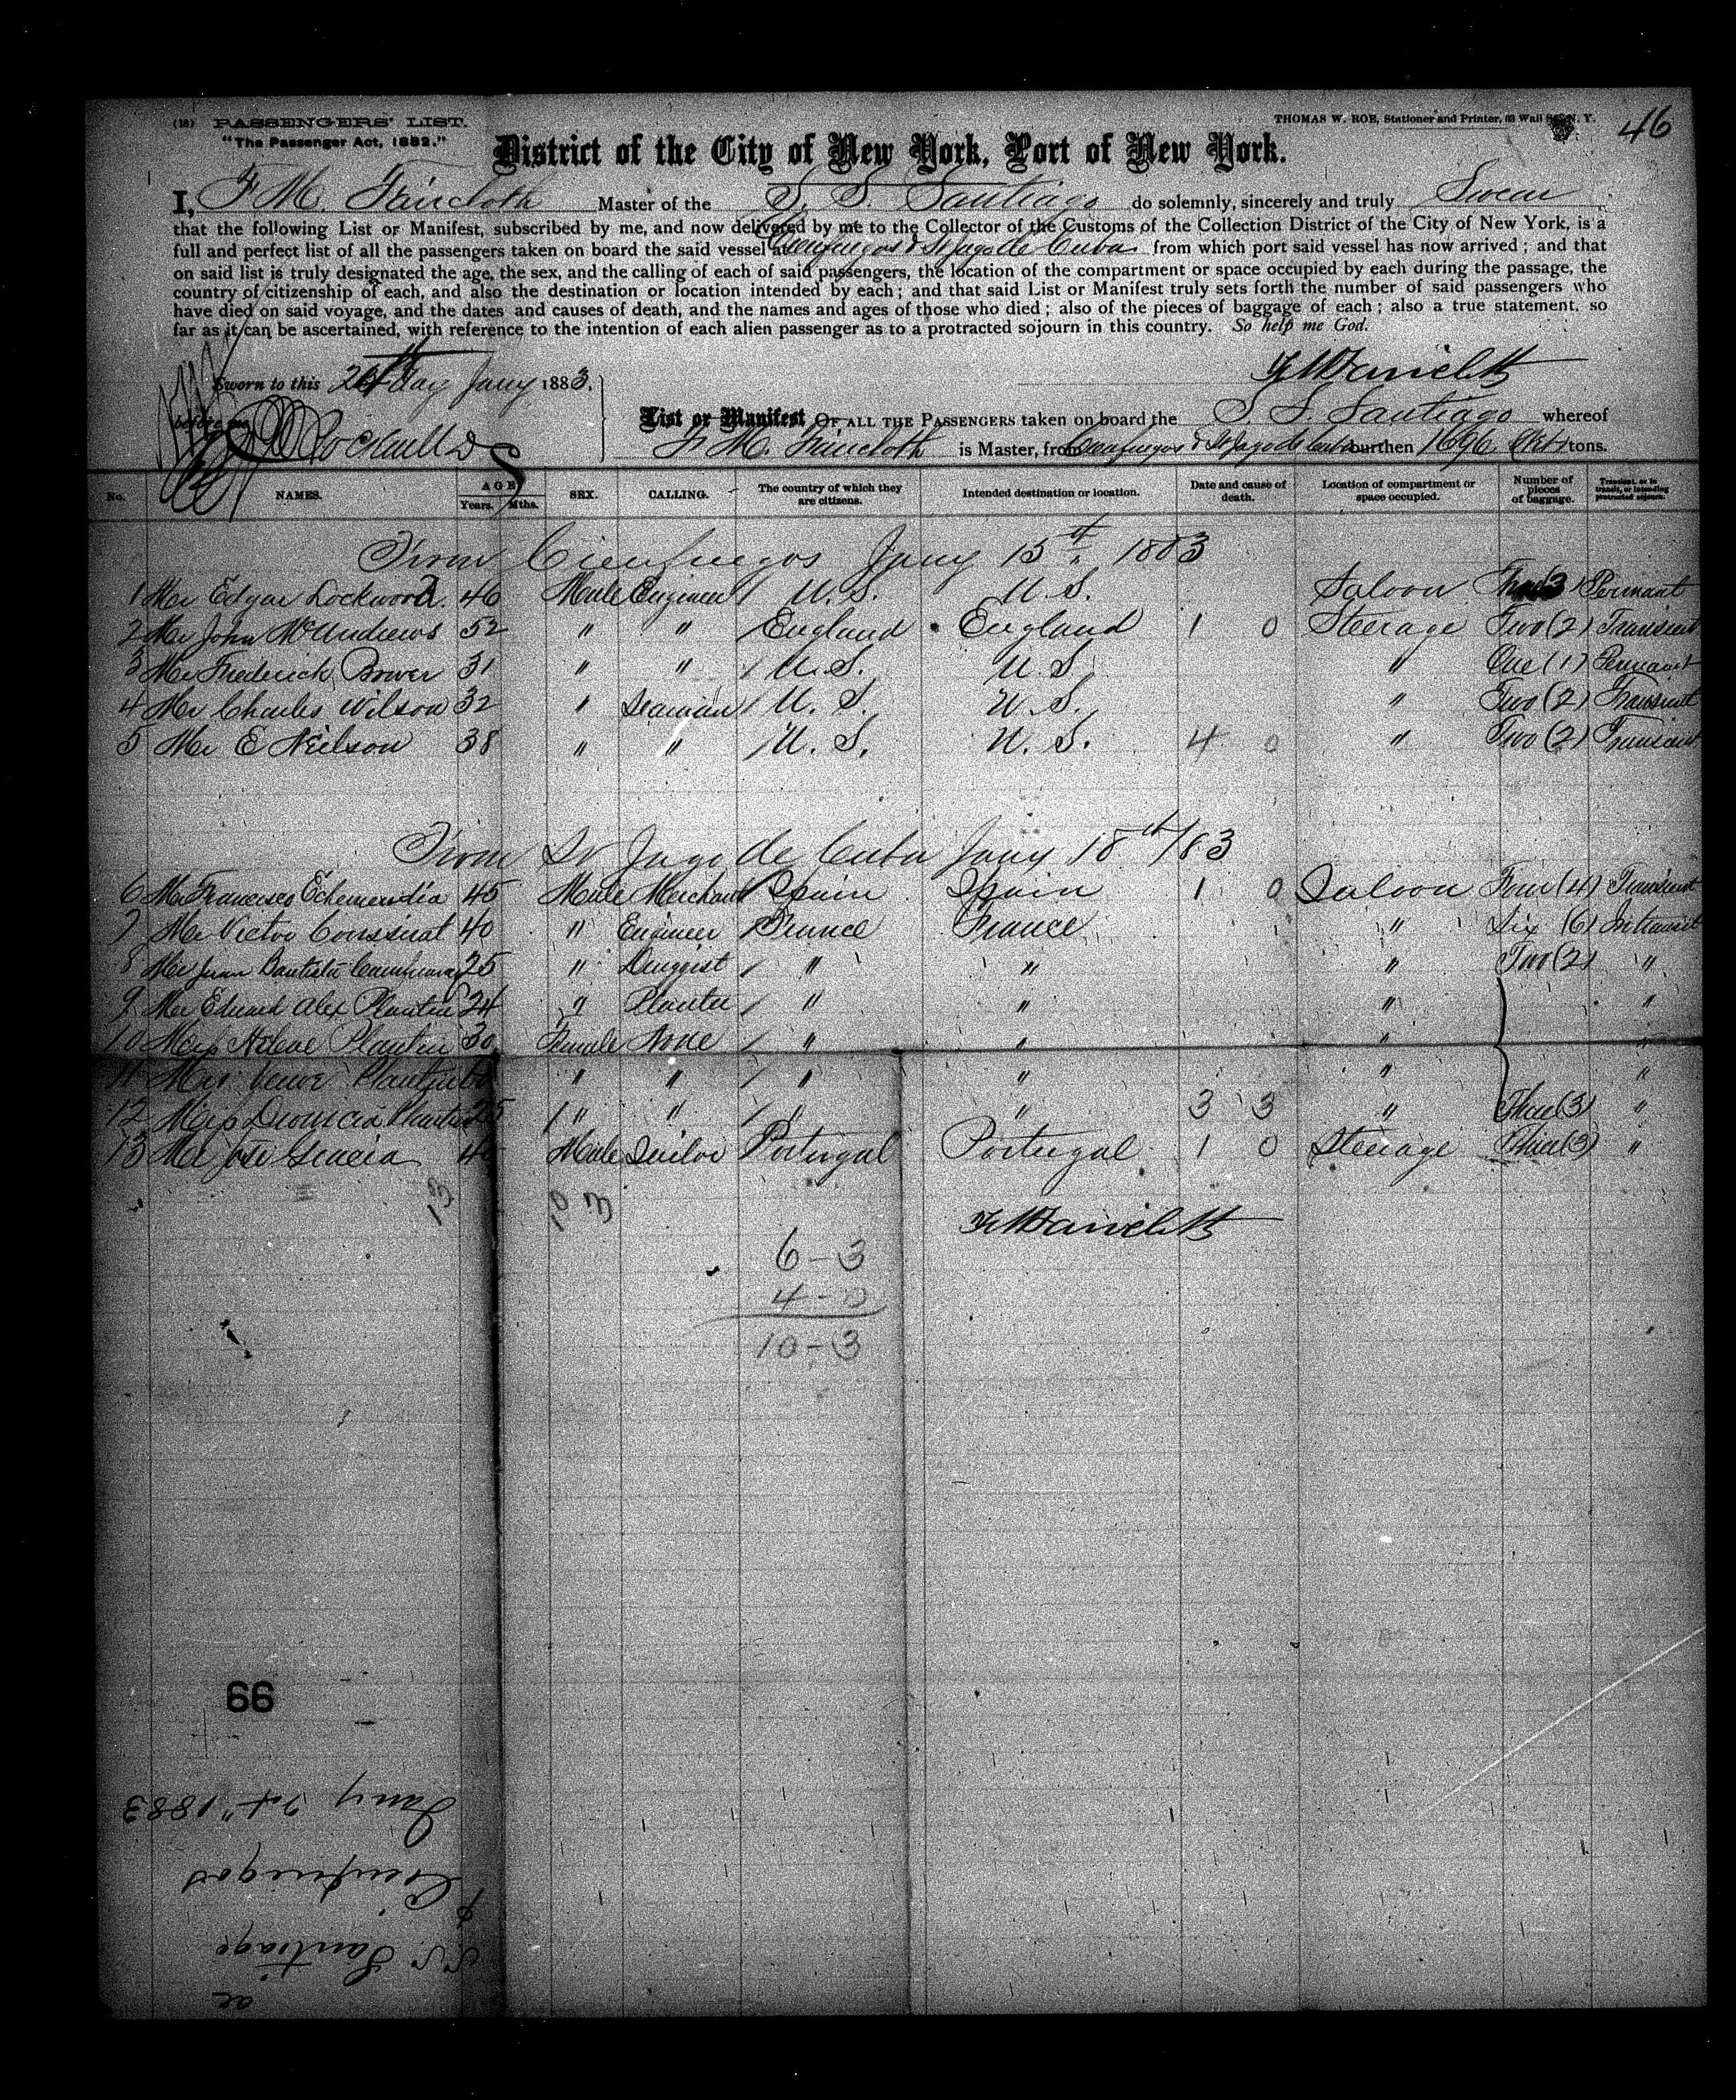 (18) PASSENGERS' LIST.
"The Passenger Act, 1882."
THOMAS W. ROE, Stationer and Printer, 63 Wall St., N. Y.
46
District of the City of New York, Port of New York.
I, F. M. Faircloth Master of the S. S. Santiago do solemnly, sincerely and truly Swear
that the following List or Manifest, subscribed by me, and now delivered by me to the Collector of the Customs of the Collection District of the City of New York, is a
full and perfect list of all the passengers taken on board the said vessel at Cienfuegos & St Jago de Cuba from which port said vessel has now arrived; and that
on said list is truly designated the age, the sex, and the calling of each of said passengers, the location of the compartment or space occupied by each during the passage, the
country of citizenship of each, and also the destination or location intended by each; and that said List or Manifest truly sets forth the number of said passengers who
have died on said voyage, and the dates and causes of death, and the names and ages of those who died; also of the pieces of baggage of each; also a true statement, so
far as it can be ascertained, with reference to the intention of each alien passenger as to a protracted sojourn in this country. So help me God.
Sworn to this 24th day Jany 1883,
F M Faircloth
before me
List or Manifest OF ALL THE PASSENGERS taken on board the S. S. Santiago whereof
F. M. Faircloth is Master, from Cienfuegos & St Jago de Cuba burthen 1696 tons.
No. NAMES. AGE Years. Mths. SEX. CALLING. The country of which they are citizens. Intended destination or location. Date and cause of death. Location of compartment or space occupied. Number of pieces of baggage. Transient, or in transit, or intending protracted sojourn.
From Cienfuegos Jany 15th 1883
1 Mr Edgar Lockwood 46 Male Engineer U. S. U. S. Saloon (3) Permant
2 Mr John McAndrews 52 " " England England 1 0 Steerage Two (2) Transient
3 Mr Frederick Bower 31 " " U. S. U. S " One (1) Permant
4 Mr Charles Wilson 32 " Seaman U. S. U. S. " Two (2) Transient
5 Mr E Neilson 38 " " U. S. U. S. 4 0 " Two (2) Transient
From St Jago de Cuba Jany 18th/83
6 Mr Francisco Echemendia 45 Male Merchant Spain Spain 1 0 Saloon Four (4) Transient
7 Mr Victor 40 " Engineer France France " Six (6) Intransit
8 Mr Juan Bautista 25 " Druggist " " " Two (2) "
9 Mr Eduard Alex Plantin 24 " Planter " " " "
10 Miss Plantin 30 Female None " " " "
11 Mrs Plantin " " " " " "
12 Miss Dionicia Plantin 25 " " " " 3 3 " Three (3) "
13 Mr Jose Gracia Male Sailor Portugal Portugal 1 0 Steerage Three (3) "
13
10 3
F M Faircloth
6 - 3
4 - 0
10 - 3
66
ac
S. S. Santiago
f Cienfuegos
Jany 24" 1883